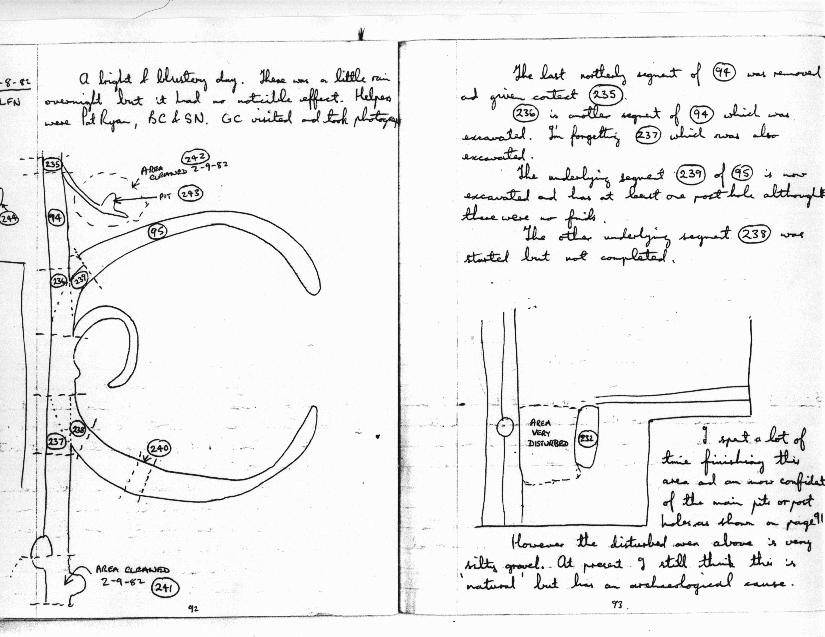 -8-82
LFN
A bright & blustery day. There was a little rain
overnight but it had no noticible effect. Helpers
were Pat Ryan, BC & SN. GC visited and took photograp
235
242
AREA CLEANED 2-9-82
PIT 243
244
94
95
236
239
237
238
240
AREA CLEANED
2-9-82
241
92
The last northerly segment of 94 was removed
and given context 235.
236 is another segment of 94 which was
excavated. I'm forgetting 237 which was also
excavated.
The underlying segment 239 of 95 is now
excavated and has at least one post hole although
there were no finds.
The other underlying segment 238 was
started but not completed.
AREA
VERY
DISTURBED
232
I spent a lot of
time finishing this
area and am now confident
of the main pits or post
holes as shown on page 91
However the disturbed area above is very
silty gravel. At present I still think this is
'natural' but has an archaeological cause.
93